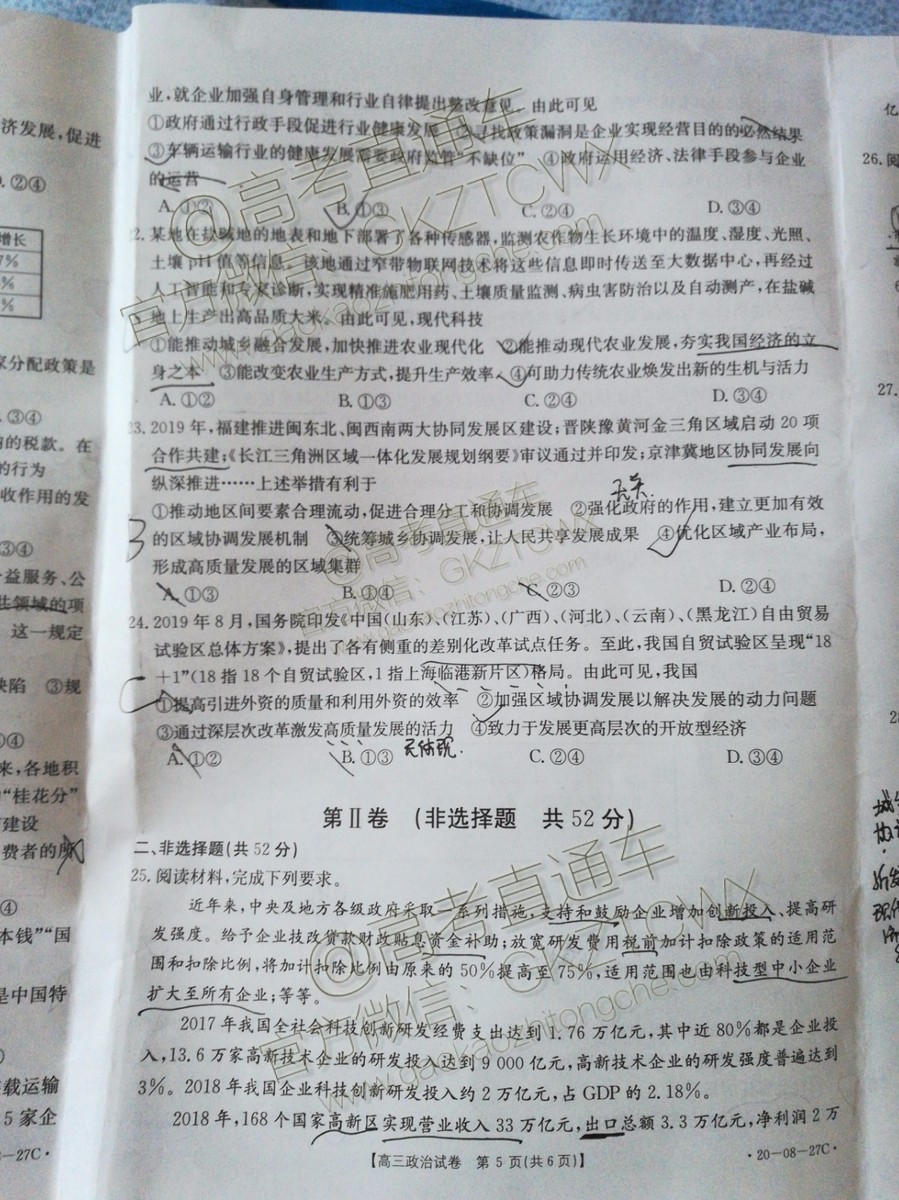 业,就企业加强自身管理和行业自律提出整改意见。由此可见
①政府通过行政手段促进行业健康发展 ②寻找政策漏洞是企业实现经营目的的必然结果
③车辆运输行业的健康发展需要政府监管“不缺位” ④政府运用经济、法律手段参与企业
的运营
A. ①② B. ①③ C. ②④ D. ③④
2. 某地在盐碱地的地表和地下部署了各种传感器,监测农作物生长环境中的温度、湿度、光照、
土壤 pH 值等信息。该地通过窄带物联网技术将这些信息即时传送至大数据中心,再经过
人工智能和专家诊断,实现精准施肥用药、土壤质量监测、病虫害防治以及自动测产,在盐碱
地上生产出高品质大米。由此可见,现代科技
①能推动城乡融合发展,加快推进农业现代化 ②能推动现代农业发展,夯实我国经济的立
身之本 ③能改变农业生产方式,提升生产效率 ④可助力传统农业焕发出新的生机与活力
A. ①② B. ①③ C. ②④ D. ③④
23. 2019 年,福建推进闽东北、闽西南两大协同发展区建设;晋陕豫黄河金三角区域启动 20 项
合作共建;《长江三角洲区域一体化发展规划纲要》审议通过并印发;京津冀地区协同发展向
纵深推进……上述举措有利于
无关
①推动地区间要素合理流动,促进合理分工和协调发展 ②强化政府的作用,建立更加有效
的区域协调发展机制 ③统筹城乡协调发展,让人民共享发展成果 ④优化区域产业布局,
形成高质量发展的区域集群
A. ①③ B. ①④ C. ②③ D. ②④
24. 2019 年 8 月,国务院印发《中国(山东)、(江苏)、(广西)、(河北)、(云南)、(黑龙江)自由贸易
试验区总体方案》,提出了各有侧重的差别化改革试点任务。至此,我国自贸试验区呈现“18
+1”(18 指 18 个自贸试验区,1 指上海临港新片区)格局。由此可见,我国
①提高引进外资的质量和利用外资的效率 ②加强区域协调发展以解决发展的动力问题
③通过深层次改革激发高质量发展的活力 ④致力于发展更高层次的开放型经济
A. ①② B. ①③ 无体现. C. ②④ D. ③④
第Ⅱ卷 (非选择题 共 52 分)
二、非选择题(共 52 分)
25. 阅读材料,完成下列要求。
近年来,中央及地方各级政府采取一系列措施,支持和鼓励企业增加创新投入、提高研
发强度。给予企业技改贷款财政贴息资金补助;放宽研发费用税前加计扣除政策的适用范
围和扣除比例,将加计扣除比例由原来的 50%提高至 75%,适用范围也由科技型中小企业
扩大至所有企业;等等。
2017 年我国全社会科技创新研发经费支出达到 1.76 万亿元,其中近 80%都是企业投
入,13.6 万家高新技术企业的研发投入达到 9 000 亿元,高新技术企业的研发强度普遍达到
3%。2018 年我国企业科技创新研发投入约 2 万亿元,占 GDP 的 2.18%。
2018 年,168 个国家高新区实现营业收入 33 万亿元,出口总额 3.3 万亿元,净利润 2 万
【高三政治试卷 第 5 页(共 6 页)】
·20-08-27C·
济发展,促进
D. ②④
增长
7%
%
%
家分配政策是
. ③④
的税款。在
的行为
收作用的发
③④
益服务、公
共领域的项
这一规定
缺陷 ③规
④
来,各地积
“桂花分”
建设
费者的所
④
本钱”“国
是中国特
载运输
5 家企
-27C·
亿
26. 阅
27.
@高考直通车
官方微信:GKZTCWX
www.gaokaozhitongche.com
@高考直通车
官方微信:GKZTCWX
www.gaokaozhitongche.com
@高考直通车
官方微信:GKZTCWX
www.gaokaozhitongche.com